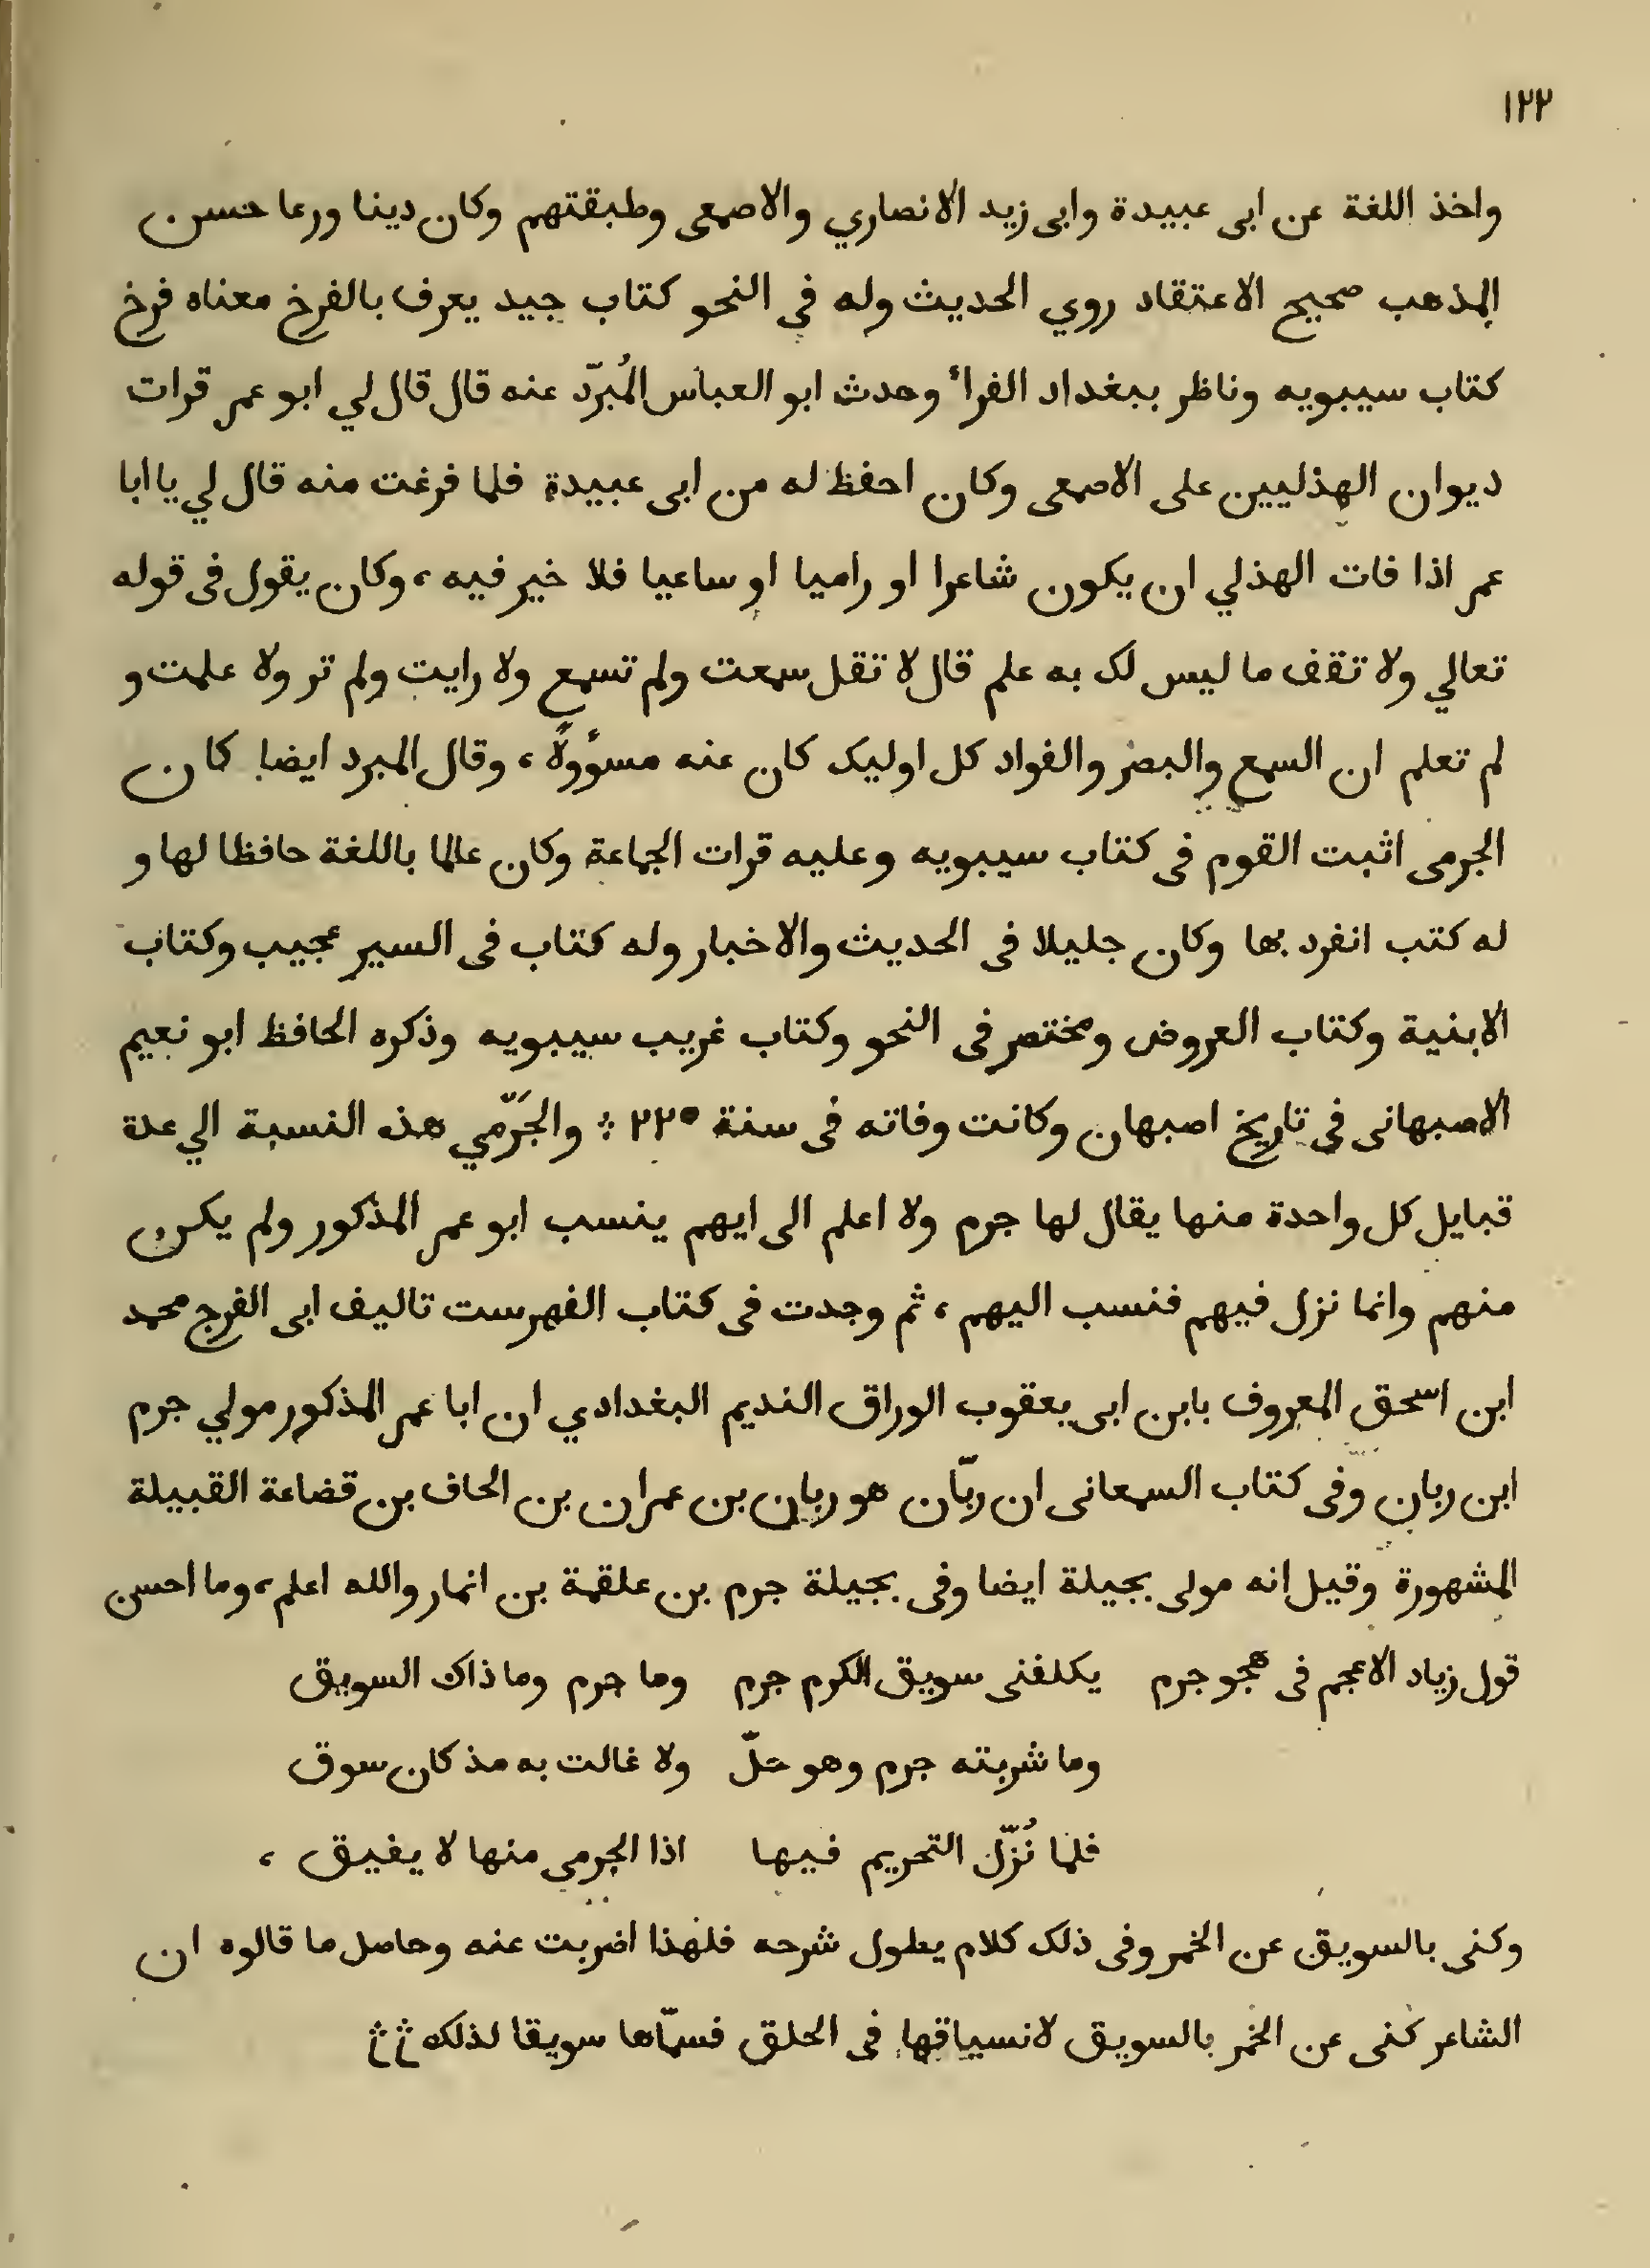 ١٢٢
واخذ اللغة عن ابى عبيدة وابى زيد الانصاري والاصمعى وطبقتهم وكان دينا ورعا حسن
المذهب صحيح الاعتقاد روي الحديث وله في النحو كتاب جيد يعرف بالفرخ معناه فرخ
كتاب سيبويه وناظر ببغداد الفراء وحدث ابو العباس المُبرّد عنه قال قال لي ابو عمر قرات
ديوان الهذليين على الاصمعى وكان احفظ له من ابى عبيدة فلما فرغت منه قال لي يا ابا
عمر اذا فات الهذلي ان يكون شاعرا او راميا او ساعيا فلا خير فيه، وكان يقول فى قوله
تعالي ولا تقف ما ليس لك به علم قال لا تقل سمعت ولم تسمع ولا رايت ولم تر ولا علمت و
لم تعلم ان السمع والبصر والفواد كل اوليك كان عنه مسؤولًا، وقال المبرد ايضا كان
الجرمى اثبت القوم فى كتاب سيبويه وعليه قرات الجماعة وكان عالما باللغة حافظا لها و
له كتب انفرد بها وكان جليلا فى الحديث والاخبار وله كتاب فى السير عجيب وكتاب
الابنية وكتاب العروض ومختصر فى النحو وكتاب غريب سيبويه وذكره الحافظ ابو نعيم
الاصبهانى في تاريخ اصبهان وكانت وفاته فى سنة ٢٢٥ ⁂ والجَرّمي هذه النسبة الي عدة
قبايل كل واحدة منها يقال لها جرم ولا اعلم الى ايهم ينسب ابو عمر المذكور ولم يكن
منهم وانما نزل فيهم فنسب اليهم، ثم وجدت فى كتاب الفهرست تاليف ابى الفرج محمد
ابن اسحق المعروف بابن ابى يعقوب الوراق النديم البغدادي ان ابا عمر المذكور مولي جرم
ابن ربان وفى كتاب السمعانى ان ربّان هو ربان بن عمران بن الحاف بن قضاعة القبيلة
المشهورة وقيل انه مولى بجيلة ايضا وفى بجيلة جرم بن علقمة بن انمار والله اعلم، وما احسن
قول زياد الاعجم فى هجو جرم يكلفنى سويق الكرم جرم وما جرم وما ذاك السويق
وما شربته جرم وهو حلّ ولا غالت به مذ كان سوق
فلما نُزّل التحريم فيها اذا الجرمى منها لا يفيق،
وكنى بالسويق عن الخمر وفى ذلك كلام يطول شرحه فلهذا اضربت عنه وحاصل ما قالوه ان
الشاعر كنى عن الخمر بالسويق لانسياقها فى الحلق فسمّاها سويقا لذلك